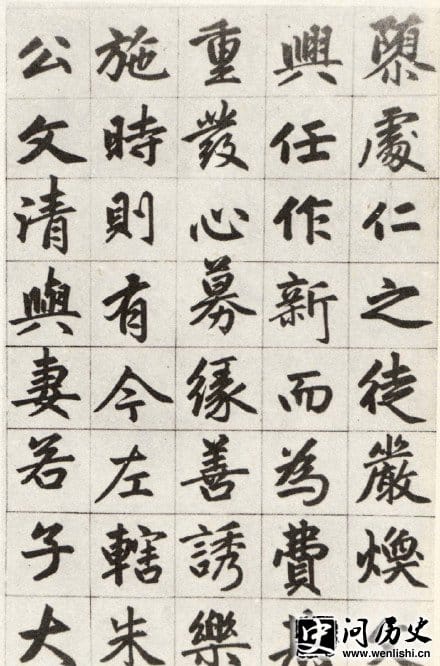 處仁之徒嚴煥
興任作新而為費
重發心募緣善誘樂
施時則有今左轄朱
公文清與妻若子大
问历史
www.wenlishi.cn